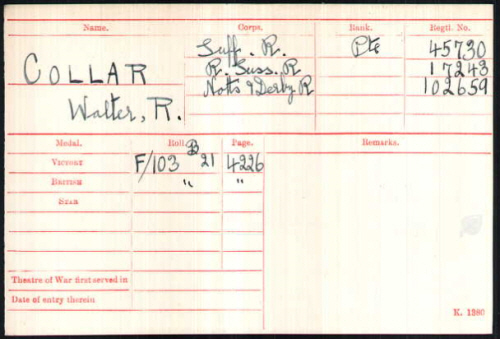 Name. Corps. Rank. Regtl. No.
COLLAR Suff. R. Pte 45730
R. Suss. R 17243
Walter, R. Notts & Derby R 102659
Medal. Roll. Page. Remarks.
Victory F/103 B 21 4226
British " "
Star
Theatre of War first served in
Date of entry therein
K. 1380